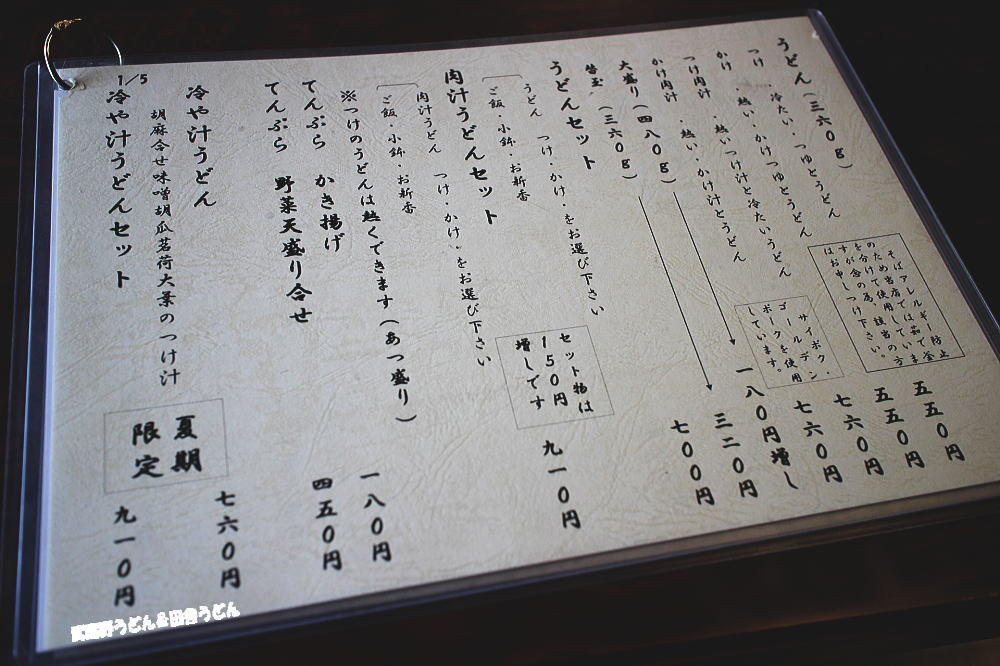 うどん（三六０ｇ）
つけ 冷たい・つゆとうどん 五五０円
かけ ・熱い・かけつゆとうどん 五五０円
つけ肉汁 ・熱いつけ汁と冷たいうどん 七六０円
かけ肉汁 ・熱い・かけ汁とうどん 七六０円
大盛り（四八０ｇ） 一八０円増し
替玉（三六０ｇ） 三二０円
そばアレルギー防止
のため当店では茹で釜
を分けて使用しています
が念の為、該当の方
はお申しつけ下さい。
サイボク・
ゴールデン
ポークを使用
しています。
うどんセット 七００円
うどん つけ・かけ・をお選び下さい
ご飯・小鉢・お新香
セット物は
１５０円
増しです
肉汁うどんセット 九一０円
肉汁うどん つけ・かけ・をお選び下さい
ご飯・小鉢・お新香
※つけのうどんは熱くできます（あつ盛り）
てんぷら かき揚げ 一八０円
てんぷら 野菜天盛り合せ 四五０円
冷や汁うどん 七六０円
胡麻合せ味噌胡瓜茗荷大葉のつけ汁
冷や汁うどんセット 九一０円
夏期
限定
1/5
武蔵野うどん＆田舎うどん